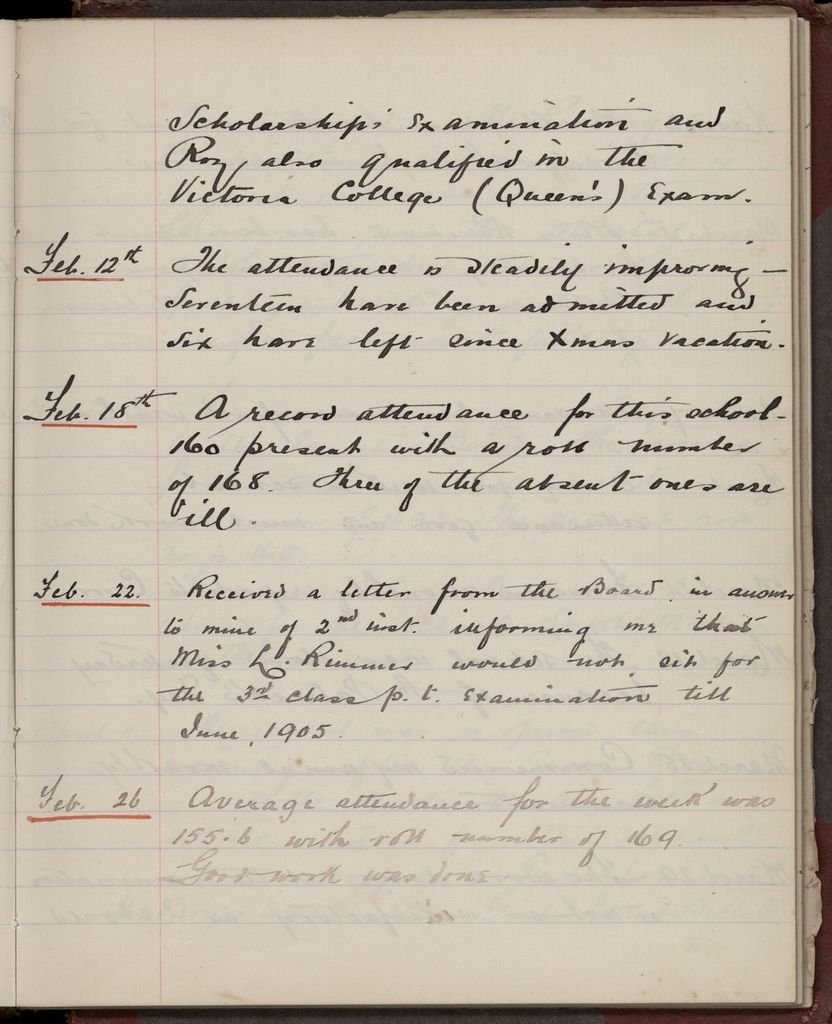 Scholarships Examination and
Roy also qualified in the
Victoria College (Queen's) Exam.
Feb. 12th The attendance is steadily improving –
seventeen have been admitted and
six have left since Xmas vacation.
Feb. 18th A record attendance for this school –
160 present with a roll number
of 168. Three of the absent ones are
ill.
Feb. 22. Received a letter from the Board, in answer
to mine of 2nd inst. informing me that
Miss L. Rimmer would not sit for
the 3rd class p. t. Examination till
June, 1905.
Feb. 26 Average attendance for the week was
155.6 with roll number of 169.
Good work was done.